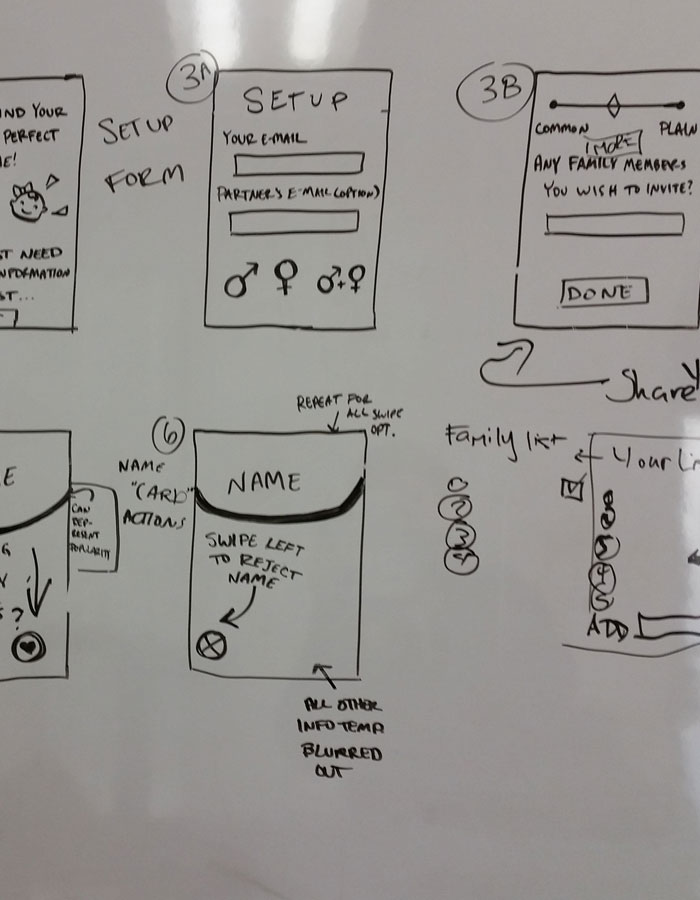 ND YOUR
PERFECT
E!
ST NEED
NFORMATION
ST...
SETUP
FORM
3A
SETUP
YOUR E-MAIL
PARTNER'S E-MAIL (OPTION)
♂ ♀ ♂+♀
3B
COMMON
PLAIN
MORE
ANY FAMILY MEMBERS
YOU WISH TO INVITE?
DONE
Share
E
CAN
REP-
RESENT
G
?
NAME
"CARD"
ACTIONS
6
REPEAT FOR
ALL SWIPE
OPT.
NAME
SWIPE LEFT
TO REJECT
NAME
ALL OTHER
INFO TEMP
BLURRED
OUT
Family list
2
3
4
Your Li
3
4
5
ADD